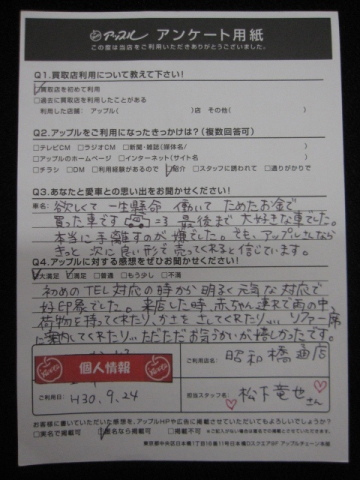 アップル アンケート用紙
この度は当店をご利用いただきありがとうございました。
Q1.買取店利用について教えて下さい!
□買取店を初めて利用
□過去に買取店を利用したことがある
利用した店舗: アップル( )店 その他( )
Q2.アップルをご利用になったきっかけは?(複数回答可)
□テレビCM □ラジオCM □新聞・雑誌(媒体名/ )
□アップルのホームページ □インターネット(サイト名 )
□チラシ □DM □利用経験があるので □紹介 □スタッフに誘われて □通りがかりで
Q3.あなたと愛車との思い出をお聞かせください!
車名: 欲しくて一生懸命 働いて ためたお金で
買った車です =3 最後まで 大好きな車でした。
本当に手離すのが 嫌でした。でも、アップルさんなら
きっと 次に良い形で 売ってくれると信じています。
Q4.アップルに対する感想をぜひお聞かせください!
□大満足 □満足 □普通 □もう少し □不満
初めのTEL対応の時から 明るく元気な対応で
好印象でした。来店した時、赤ちゃん連れで雨の中、
荷物を持ってくれたり、かさを さしてくれたり… ソファー席
に案内してくれたり… ただただ お気づかいが嬉しかったです。
個人情報
ご利用店名: 昭和橋通店
ご利用日: H30.9.24
担当スタッフ名: 松下竜也さん
お客様に書いていただいた感想を、アップルHPや広告に掲載させていただいてもよろしいでしょうか?
□実名で掲載可 □匿名なら掲載可 □掲載不可